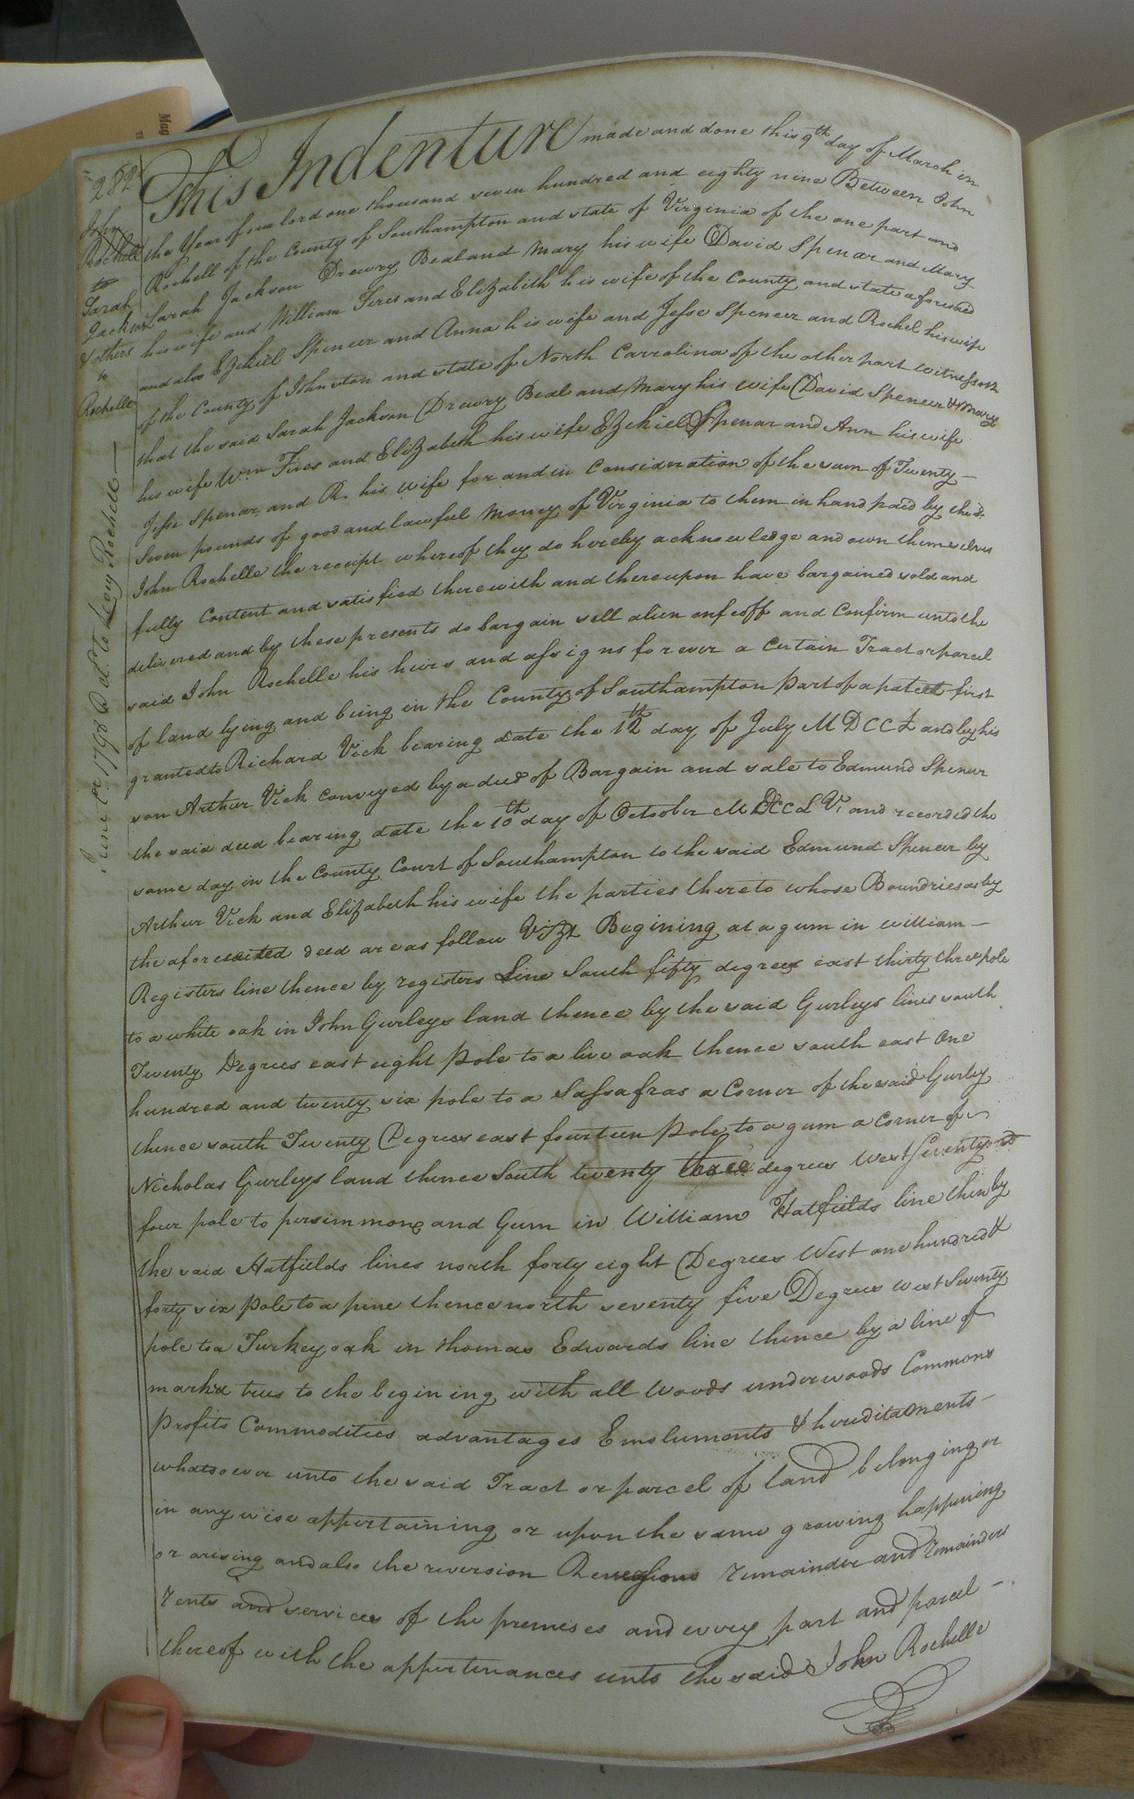 282
John
Rochell
to
Sarah
Jackson
& others
to
Rochelle
June 1798 Dd. to Levy Rochell
This Indenture made and done this 9th day of March in
the Year of our lord one thousand seven hundred and eighty nine Between John
Rochell of the County of Southampton and state of Virginia of the one part and
Sarah Jackson Drewry Beal and Mary his wife David Spencer and Mary
his wife and William Fires and Elizabeth his wife of the County and state aforesaid
and also Ezekiel Spencer and Anna his wife and Jesse Spencer and Rochel his wife
of the County of Johnston and state of North Carrolina of the other part witnesseth
that the said Sarah Jackson Drewry Beal and Mary his wife David Spencer & Mary
his wife Wm Fires and Elizabeth his wife Ezekiel Spencer and Ann his wife
Jesse Spencer and R. his wife for and in Consideration of the sum of Twenty
Seven pounds of good and lawful Money of Virginia to them in hand paid by the sd.
John Rochelle the receipt whereof they do hereby acknowledge and own themselves
fully Content and satisfied therewith and thereupon have bargained sold and
delivered and by these presents do bargain sell alien enfeoff and Confirm unto the
said John Rochelle his heirs and assigns for ever a Certain Tract or parcel
of land lying and being in the County of Southampton part of a patent first
granted to Richard Vick bearing date the 12th day of July MDCCL and by his
son Arthur Vick Conveyed by a deed of Bargain and sale to Edmund Spencer
the said deed bearing date the 10th day of October MDCCLVI and recorded the
same day in the County Court of Southampton to the said Edmund Spencer by
Arthur Vick and Elizabeth his wife the parties thereto whose Boundries as by
the aforerecited deed are as follow Vizt Begining at a gum in william
Registers line thence by registers Line South fifty degrees east thirty three pole
to a white oak in John Gurleys land thence by the said Gurleys lines south
Twenty Degrees east eight pole to a live oak thence south east One
hundred and twenty six pole to a Sassafras a Corner of the said Gurley
thence south Twenty Degrees east fourteen Pole to a gum a Corner of
Nicholas Gurleys land thence South twenty three degrees West Seventy
four pole to persimmons and Gum in William Hatfields line then by
the said Hatfields lines north forty eight Degrees West one hundred &
forty six pole to a pine thence north seventy five Degrees west Seventy
pole to a Turkey oak in thomas Edwards line thence by a line of
markd trees to the begining with all Woods underwoods Commons
Profits Commodities advantages Emoluments & hereditaments
whatsoever unto the said Tract or parcel of land belonging or
in any wise appertaining or upon the same growing happening
or arising and also the reversion Reversions remainder and remainders
rents and services of the premises and every part and parcel
thereof with the appertenances unto the said John Rochelle